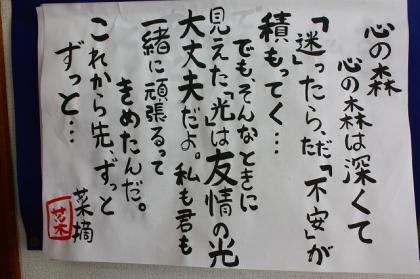 心の森
心の森は深くて
「迷」ったら、ただ「不安」が
積もってく…
でも、そんなときに
見えた「光」は友情の光
大丈夫だよ。私も君も
一緒に頑張るって
きめたんだ。
これから先、ずっと
ずっと…
菜摘
菜